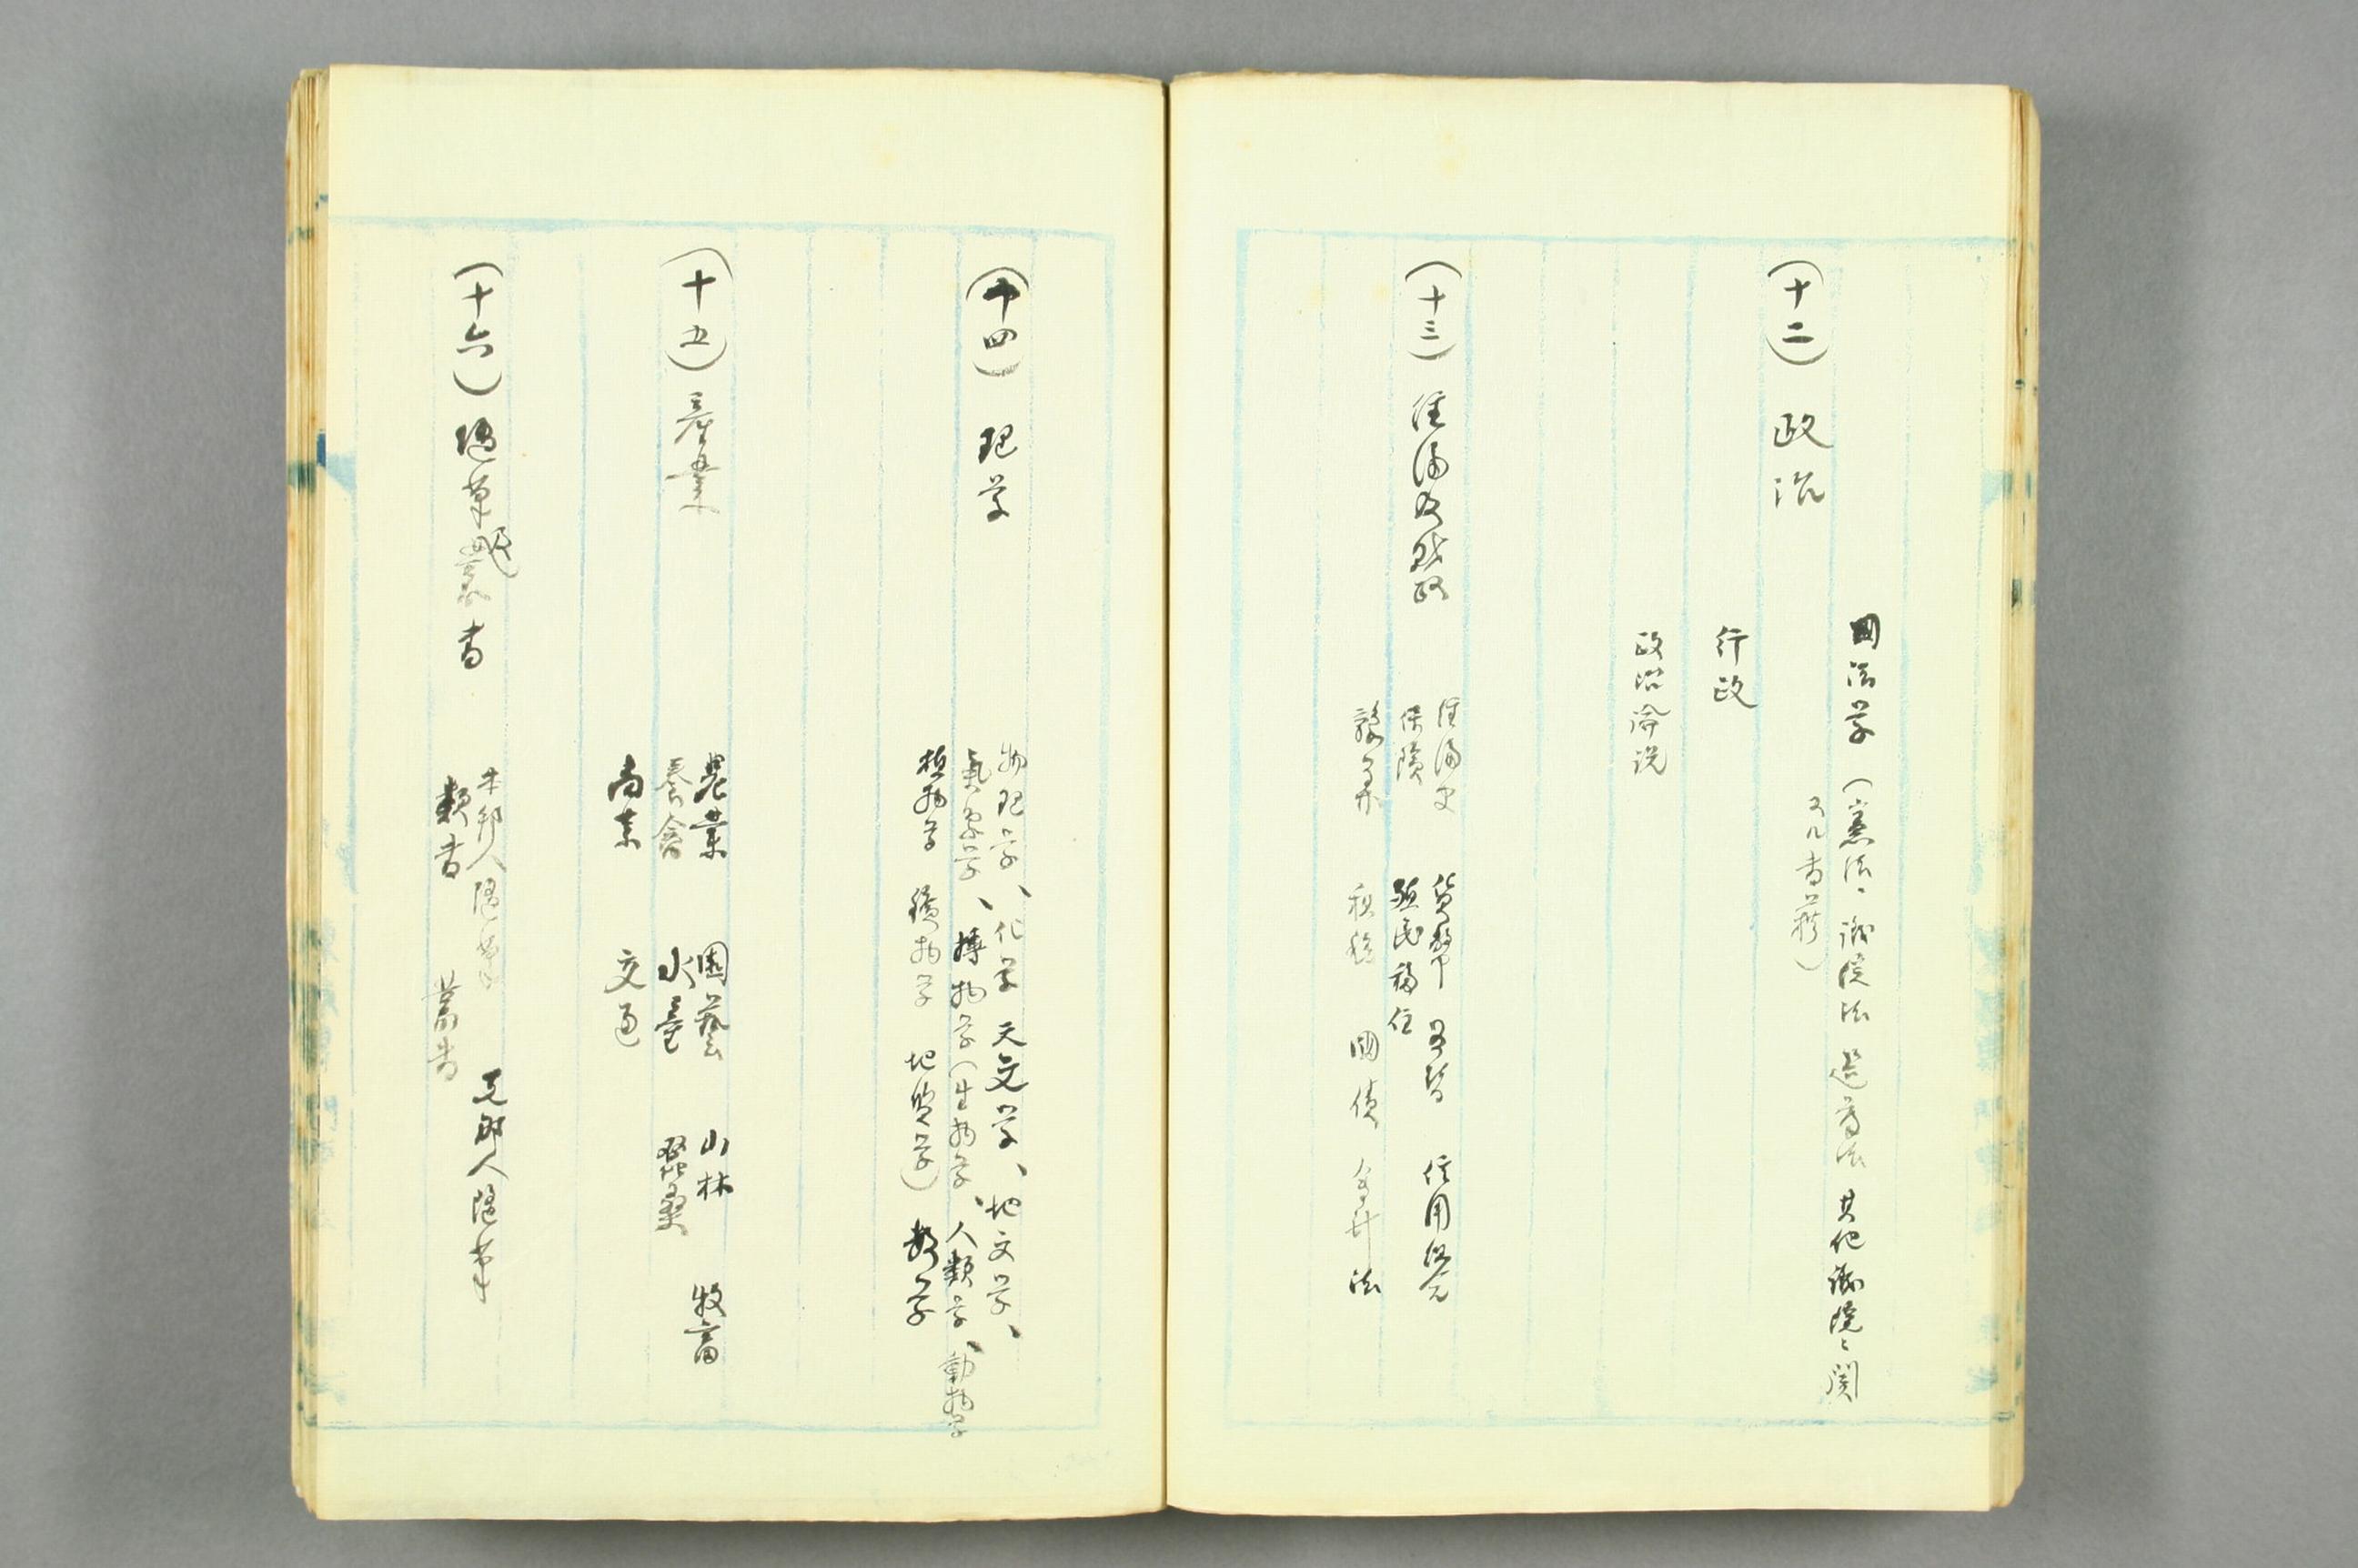 (十二) 政治
國法学 (憲法、議院法 選挙法 其他議院ニ関
スル書籍)
行政
政治論説
(十三) 経済及財政
経済史 貨幣 為替 信用組合
保険 殖民移住
豫算 租税 國債 会計法
(十四) 理学
物理学、化学 天文学、地文学、
氣象学、博物学(生物学、人類学、動物学
植物学 鑛物学 地質学) 数学
(十五) 産業
農業 園藝 山林 牧畜
養禽 水産 蚕桑
商業 交通
(十六) 随筆及叢書
本邦人随筆 支那人随筆
類書 叢書